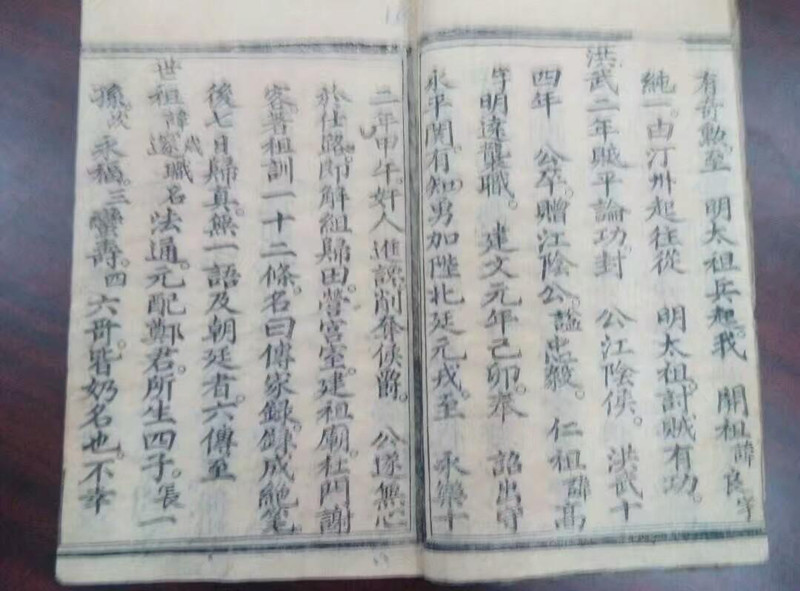 有奇勳。至　明太祖兵起。我　開祖諱良字
純一。由汀州起往從　明太祖。討賊有功。
洪武二年賊平論功。封　公江陰侯。洪武十
四年　公卒。贈江陰公。謚忠毅。仁祖諱高
字明遠襲職。建文元年己卯奉　詔出守
永平関。有知勇加陞北廷元戎。至　永樂十
二年甲午奸人進讒削奪侯爵。公遂無心
於仕路。即解組歸田。營宮室。建祖廟。杜門謝
客。著祖訓一十二條。名曰傳家錄。錄成絶筆。
後七日歸真。無一語及朝廷者。六傳至
世祖諱歲遜職名法通。元配鄭君。所生四子。長一
孫。次永福。三蠻壽。四六哥。皆奶名也。不幸